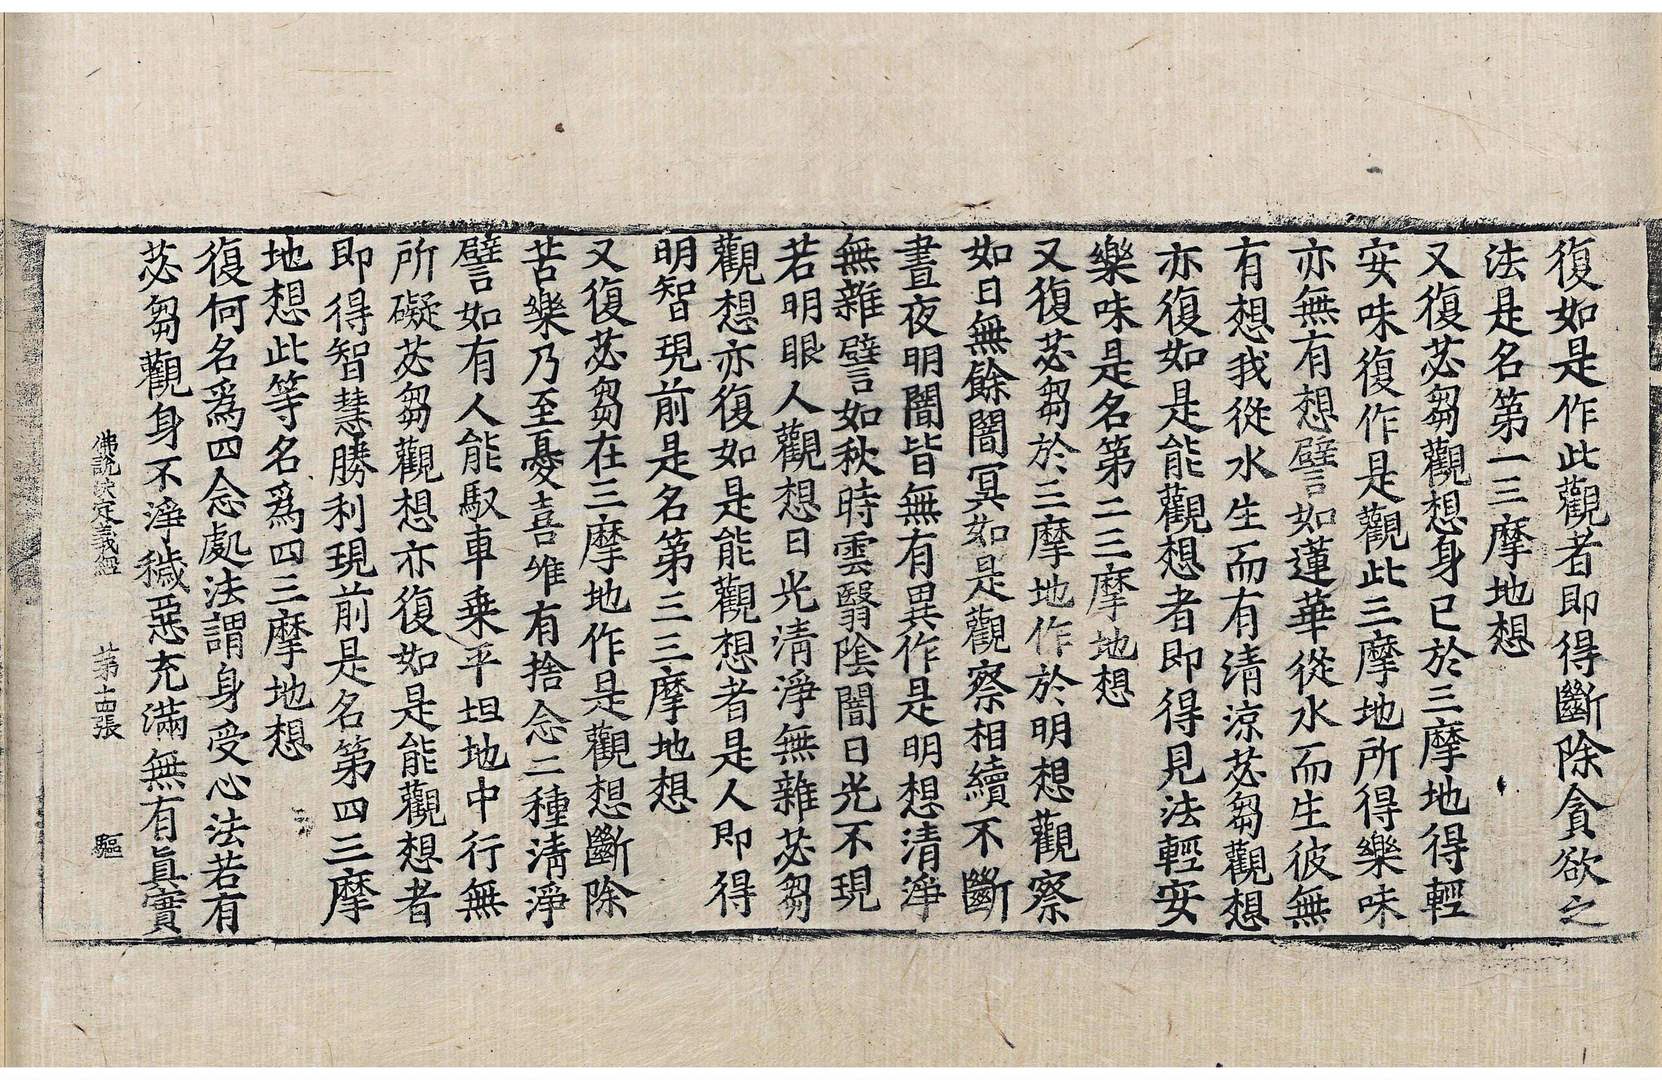 復如是作此觀者即得斷除貪欲之
法是名第一三摩地想
又復苾芻觀想身已於三摩地得輕
安味復作是觀此三摩地所得樂味
亦無有想譬言如蓮華從水而生彼無
有想我從水生而有清涼苾芻觀想
亦復如是能觀想者即得見法輕安
樂味是名第二三摩地想
又復苾芻於三摩地作於明想觀察
如日無餘闇冥如是觀察相續不斷
晝夜明闇皆無有異作是明想清淨
無雜譬如秋時雲翳陰闇日光不現
若明眼人觀想日光清淨無雜苾芻
觀想亦復如是能觀想者是人即得
明智現前是名第三三摩地想
又復苾芻在三摩地作是觀想斷除
苦樂乃至憂喜唯有捨念二種清淨
譬如有人能馭車乗平坦地中行無
所礙苾芻觀想亦復如是能觀想者
即得智慧勝利現前是名第四三摩
地想此等名爲四三摩地想
復何名爲四念處法謂身受心法若有
苾芻觀身不淨穢惡充滿無有眞實
佛說決定義經 第十四張 驅